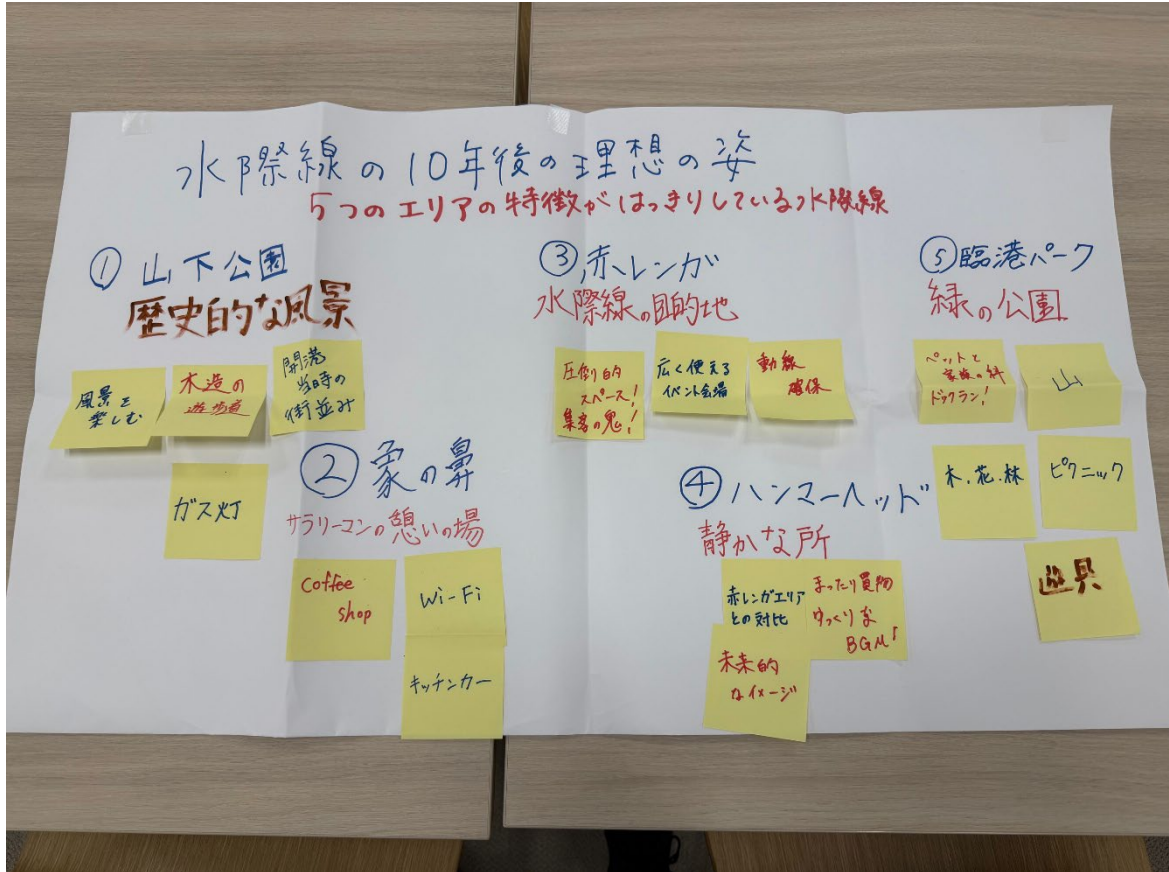 水際線の10年後の理想の姿
5つのエリアの特徴がはっきりしている水際線
① 山下公園
歴史的な風景
風景を
楽しむ
木造の
遊歩道
開港
当時の
街並み
ガス灯
② 象の鼻
サラリーマンの憩いの場
Coffee
shop
Wi-Fi
キッチンカー
③ 赤レンガ
水際線の目的地
圧倒的
スペース!
集客の鬼!
広く使える
イベント会場
動線
確保
④ ハンマーヘッド
静かな所
赤レンガエリア
との対比
まったり買物
ゆっくりな
BGM!
未来的
なイメージ
⑤ 臨港パーク
緑の公園
ペットと
家族の絆
ドックラン!
山
木、花、林
ピクニック
遊具